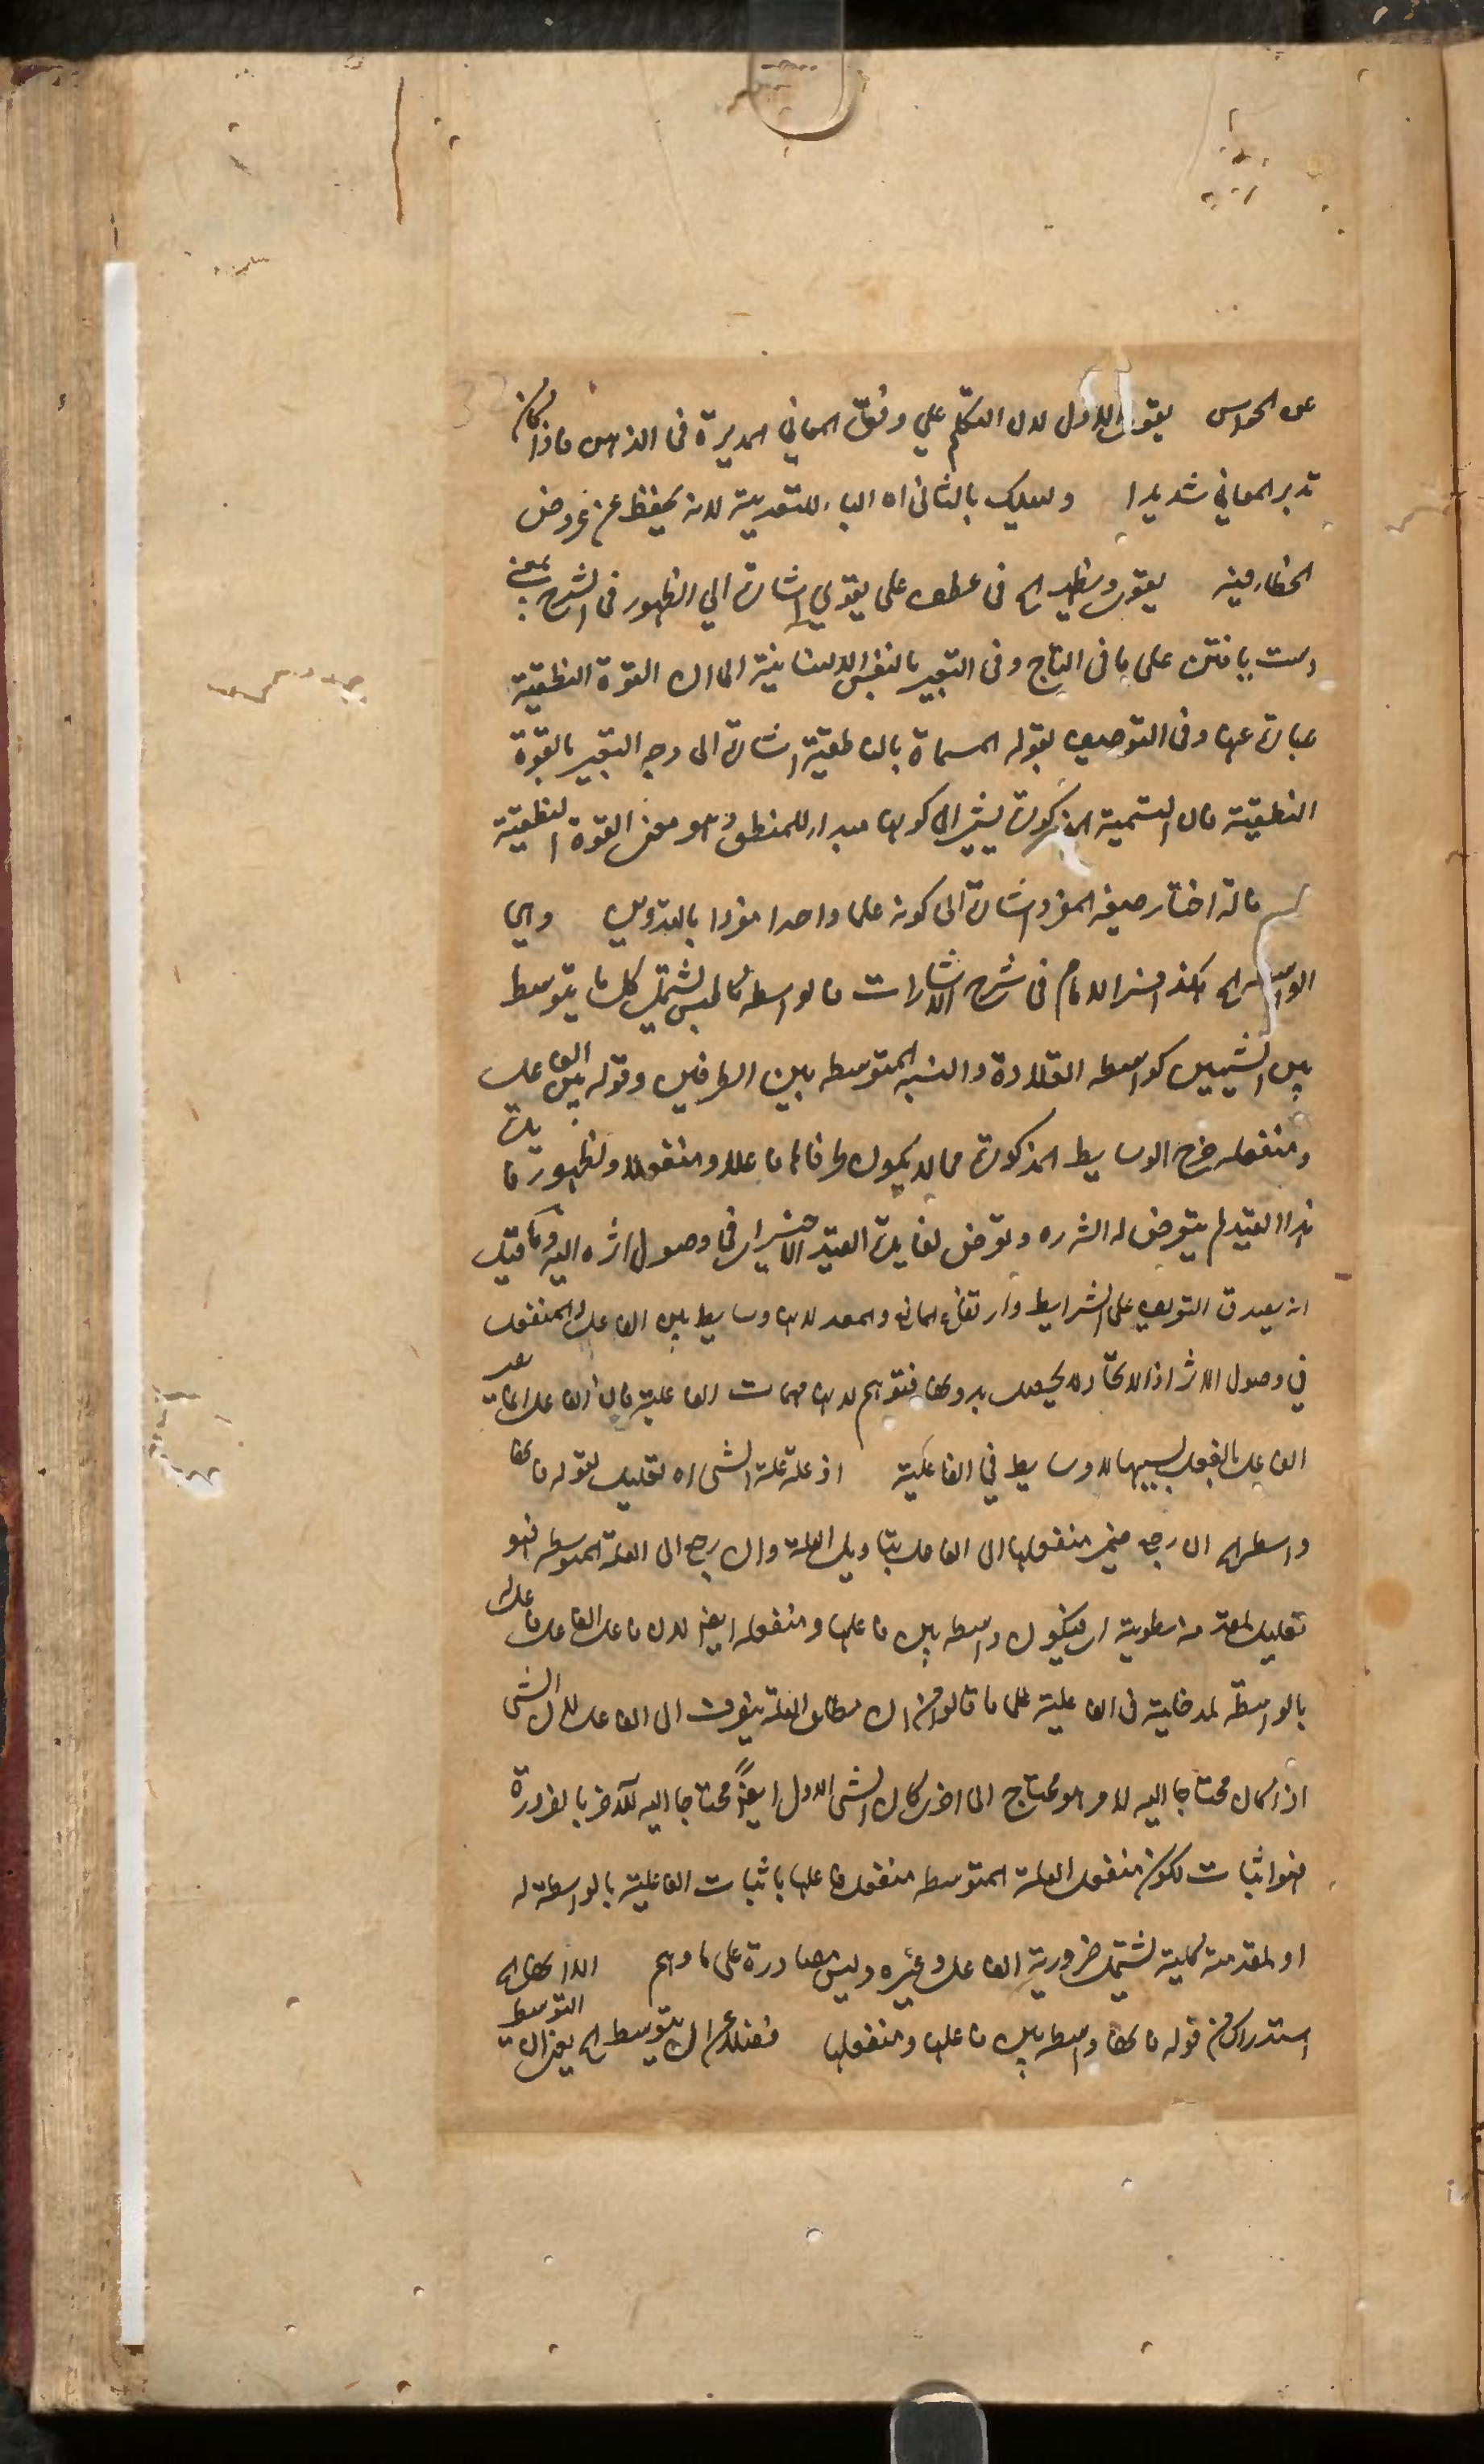 عن الحواس يقوي الاول لان التكلم علي وفق المعاني المدبرة فى الذهن فاذا كان
تدبر المعاني شديدا ويسلك بالثانى اه الباء للتعدية لانه يحفظ عن عروض
الخطاء فيه يقوى ويظهر الخ فى عطف على يقوي اشارة الي الظهور فى الشرح بمعنى
دست يافتن على ما فى التاج وفى التعبير بالنفس الانسانية الى ان القوة النطقية
عبارة عنها وفى التوصيف بقوله المسماة بالناطقية اشارة الى وجه التعبير بالقوة
النطقية فان التسمية المذكورة يشير الى كونها مبدا للمنطق وهو معنى القوة النطقية
قاله اختار صيغة المفرد اشارة الى كونه علما واحدا مفردا بالتدوين وهي
الواسطة الخ هكذا فسر الامام فى شرح الاشارات فالواسطة كالجنس يشتمل كل ما يتوسط
بين الشيئين كواسطة القلادة والنسبة المتوسطة بين الطرفين وقوله بين الفاعل
ومنفعله خرج الوسايط المذكورة مما لا يكون طرفاها فاعلا ومنفعلا ولظهور فايدة
هذا القيد لم يتعرض له الش ره وتعرض لفايدة القيد الاخير اى فى وصول اثره اليه وما قيل
انه يصدق التعريف على الشرايط وارتفاع المانع والمعد لانها وسايط بين الفاعل والمنفعل
في وصول الاثر اذ الايجاد لا يحصل بدونها فتوهم لانها متممات الفاعلية فان الفاعل انما يصير
الفاعل بالفعل بسببها لا وسايط في الفاعلية اذ علة علة الشى اه تعليل لقوله فانها
واسطة الخ ان رجع ضمير منفعلها الى الفاعل بتاويل العلة وان رجع الى العلة المتوسطة فهو
تعليل لمقدمة مطوية اى فيكون واسطة بين فاعلها ومنفعله ايضا لان فاعل الفاعل فاعل
بالواسطة لمدخلية فى الفاعلية على ما قالوا من ان مطلق العلة ينصرف الى الفاعل لان الشى
اذا كان محتاجا اليه لامر هو محتاج الى اخر كان الشى الاول ايضاً محتاجا اليه للآخر بالضرورة
فهو اثبات لكون منفعل العلة المتوسطة منفعل فاعلها باثبات الفاعلية بالواسطة له
او لمقدمة كلية تشتمل ضرورية الفاعل وغيره وليس مصادرة على ما وهم الا انها الخ
استدراك من قوله فانها واسطة بين فاعلها ومنفعلها فضلا عن ان يتوسط الخ يعنى ان التوسط